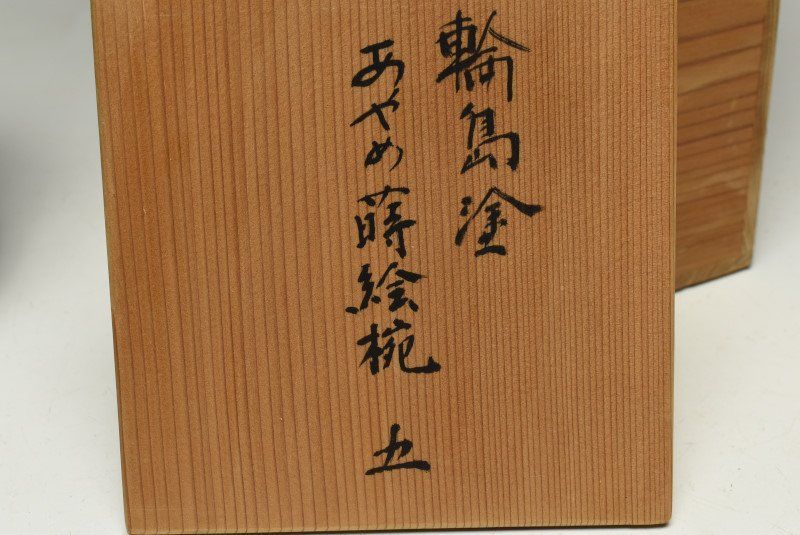 輪島塗
あやめ蒔絵椀 五